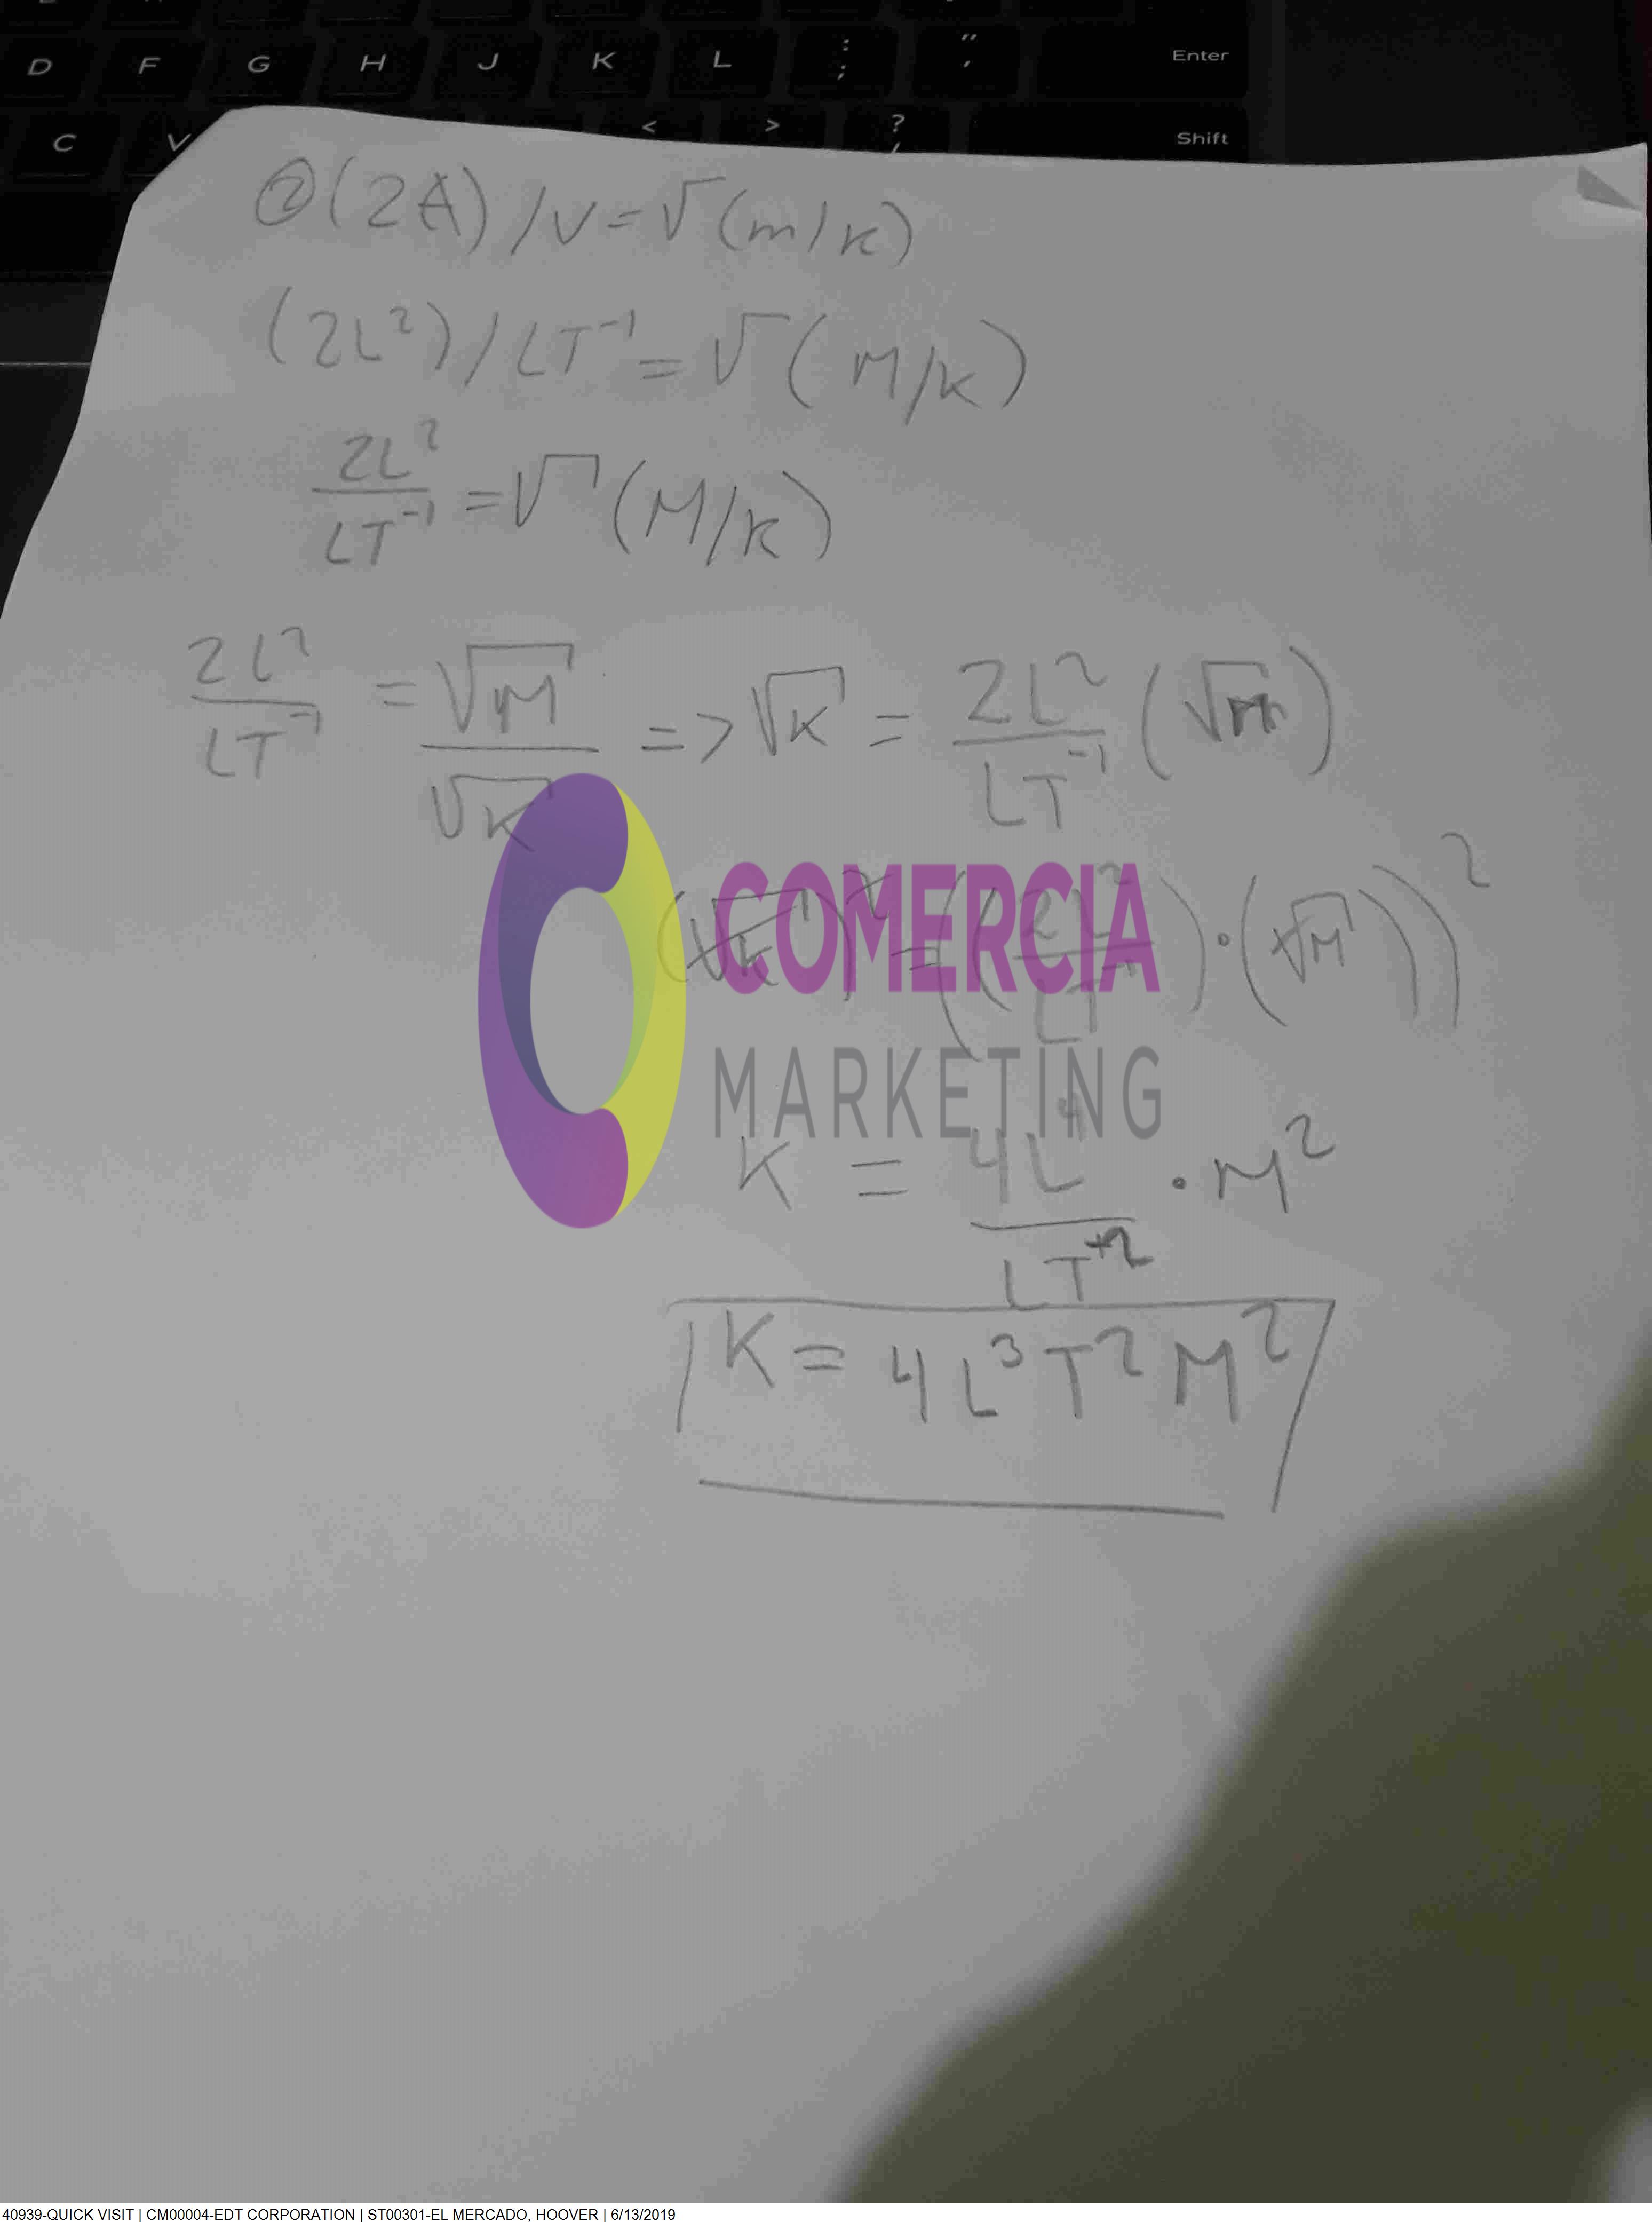 D F G H J K L : ; " ' Enter
C V < > ? / Shift
② (2A) / V = √(m/k)
(2L²) / LT⁻¹ = √(M/K)
2L² / LT⁻¹ = √(M/K)
2L² / LT⁻¹ = √M / √K => √K = 2L² / LT⁻¹ (√m)
(√K)² = ((2L² / LT⁻¹) · (√M))²
COMERCIA
MARKETING
K = 4L⁴ / LT⁺² · M²
K = 4L³T²M²
40939-QUICK VISIT | CM00004-EDT CORPORATION | ST00301-EL MERCADO, HOOVER | 6/13/2019